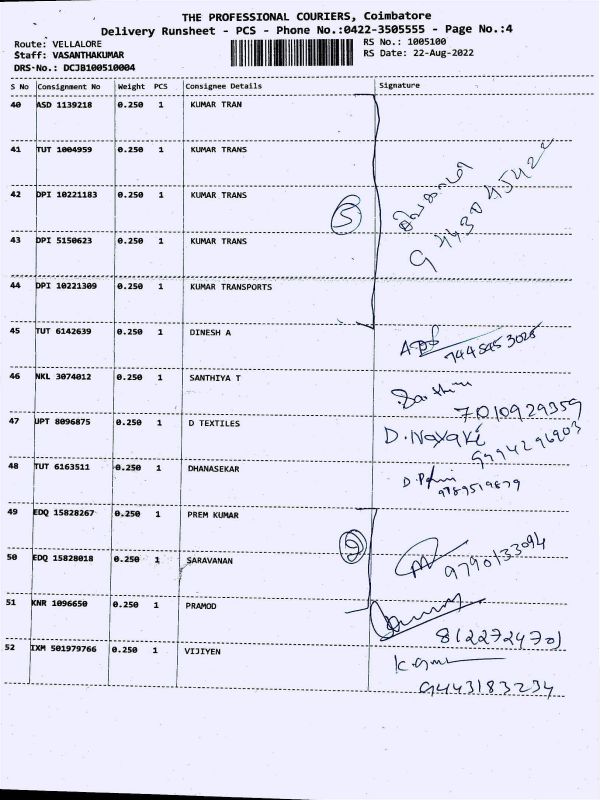 THE PROFESSIONAL COURIERS, Coimbatore
Delivery Runsheet - PCS - Phone No.:0422-3505555 - Page No.:4
Route: VELLALORE RS No.: 1005100
Staff: VASANTHAKUMAR RS Date: 22-Aug-2022
DRS-No.: DCJB100510004
S No Consignment No Weight PCS Consignee Details Signature
40 ASD 1139218 0.250 1 KUMAR TRAN
41 TUT 1004959 0.250 1 KUMAR TRANS
42 DPI 10221183 0.250 1 KUMAR TRANS
5
9443045422
43 DPI 5150623 0.250 1 KUMAR TRANS
44 DPI 10221309 0.250 1 KUMAR TRANSPORTS
45 TUT 6142639 0.250 1 DINESH A
46 NKL 3074012 0.250 1 SANTHIYA T
7010929359
47 UPT 8096875 0.250 1 D TEXTILES D.Nayaki
9994296903
48 TUT 6163511 0.250 1 DHANASEKAR
9789519879
49 EDQ 15828267 0.250 1 PREM KUMAR
50 EDQ 15828018 0.250 1 SARAVANAN 9790133094
51 KNR 1096650 0.250 1 PRAMOD
8122724701
52 IXM 501979766 0.250 1 VIJIYEN
9443183234